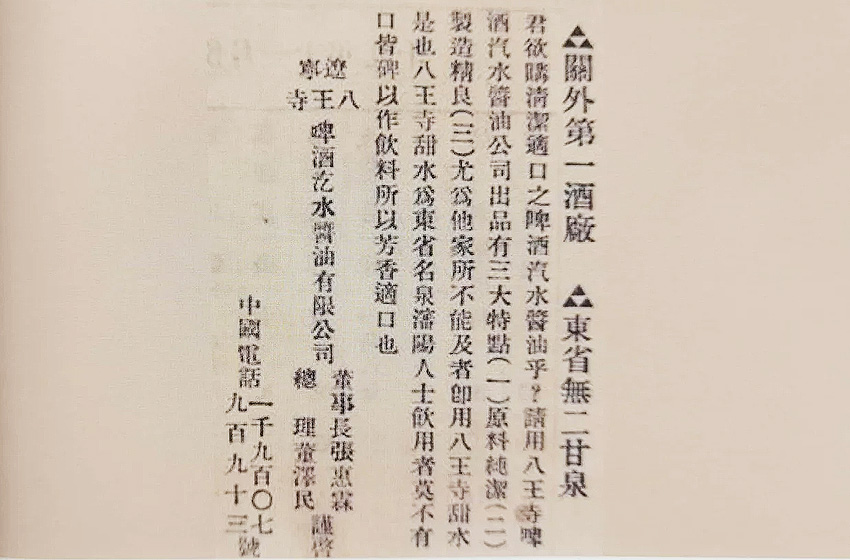 ▲關外第一酒廠 ▲東省無二甘泉
君欲購清潔適口之啤酒汽水醬油乎？請用八王寺啤
酒汽水醬油公司出品有三大特點(一)原料純潔(二)
製造精良(三)尤爲他家所不能及者卽用八王寺甜水
是也八王寺甜水爲東省名泉瀋陽人士飲用者莫不有
口皆碑以作飲料所以芳香適口也
遼寧
八王寺
啤酒汽水醬油有限公司
董事長張惠霖
總理董澤民
謹啓
中國電話
一千九百〇七
九百九十三號